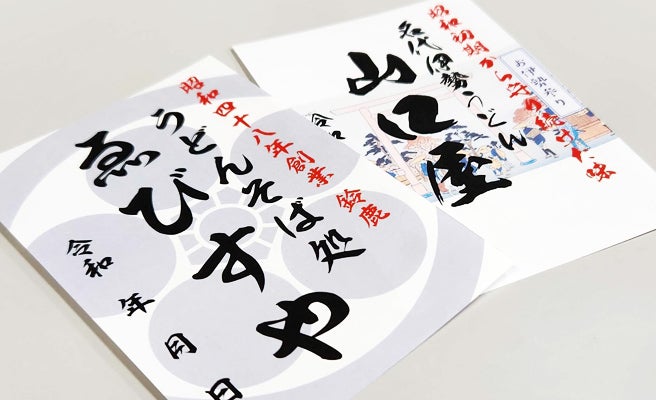 昭和四十八年創業 鈴鹿
うどんそば処
ゑびすや
令和 年 月 日
昭和初期から守り続けた味
お伊勢参り
名代伊勢うどん
山口屋
令和